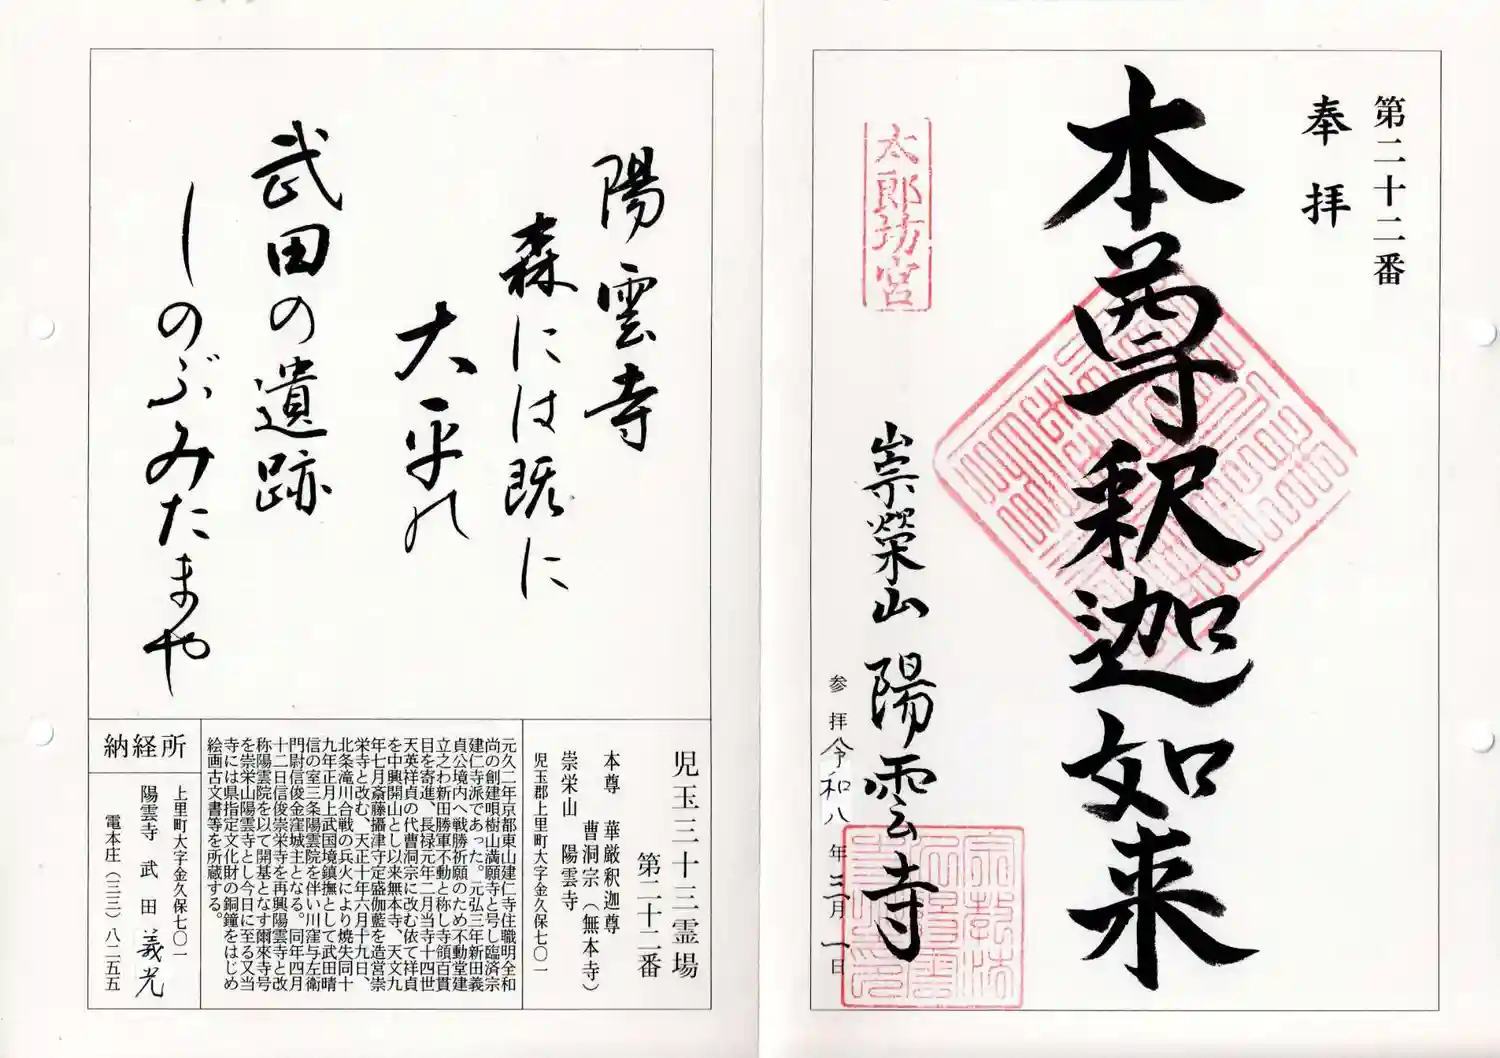 第二十二番
奉拝
本尊釈迦如来
太郎坊宮
崇榮山 陽雲寺
参拝 令和八年三月一日
陽雲寺
森には既に
大平の
武田の遺跡
しのぶみたまや
児玉三十三霊場
第二十二番
本尊 華厳釈迦尊
曹洞宗(無本寺)
崇栄山 陽雲寺
児玉郡上里町大字金久保七〇一
元久二年京都東山建仁寺住職明全和
尚の創建唄樹山満願寺と号し臨済宗
建仁寺派であった。元弘三年新田義
貞公境内へ戦勝祈願のため不動堂建
立之わ新田勝軍不動と称し寺領百貫
目を寄進、長禄元年二月当寺十四世
天英祥貞の代曹洞宗に改む依て祥貞
を中興開山とし以来無本寺、天文九
年七月斎藤攝津守定盛伽藍を造営崇
栄寺と改む、天正十年六月十九日、
北条滝川合戦の兵火により焼失同十
九年正月上武国境鎮撫として武田晴
信の室三条陽雲院を伴い川窪与左衛
門尉信俊金窪城主となる。同年四月
十二日信俊崇栄寺を再興陽雲寺と改
称陽雲院を以て開基となす爾來寺号
を崇栄山陽雲寺とし今日に至る又当
寺には県指定文化財の銅鐘をはじめ
絵画古文書等を所蔵する。
納経所
上里町大字金久保七〇一
陽雲寺 武田 義光
電本庄(三三)八二五五